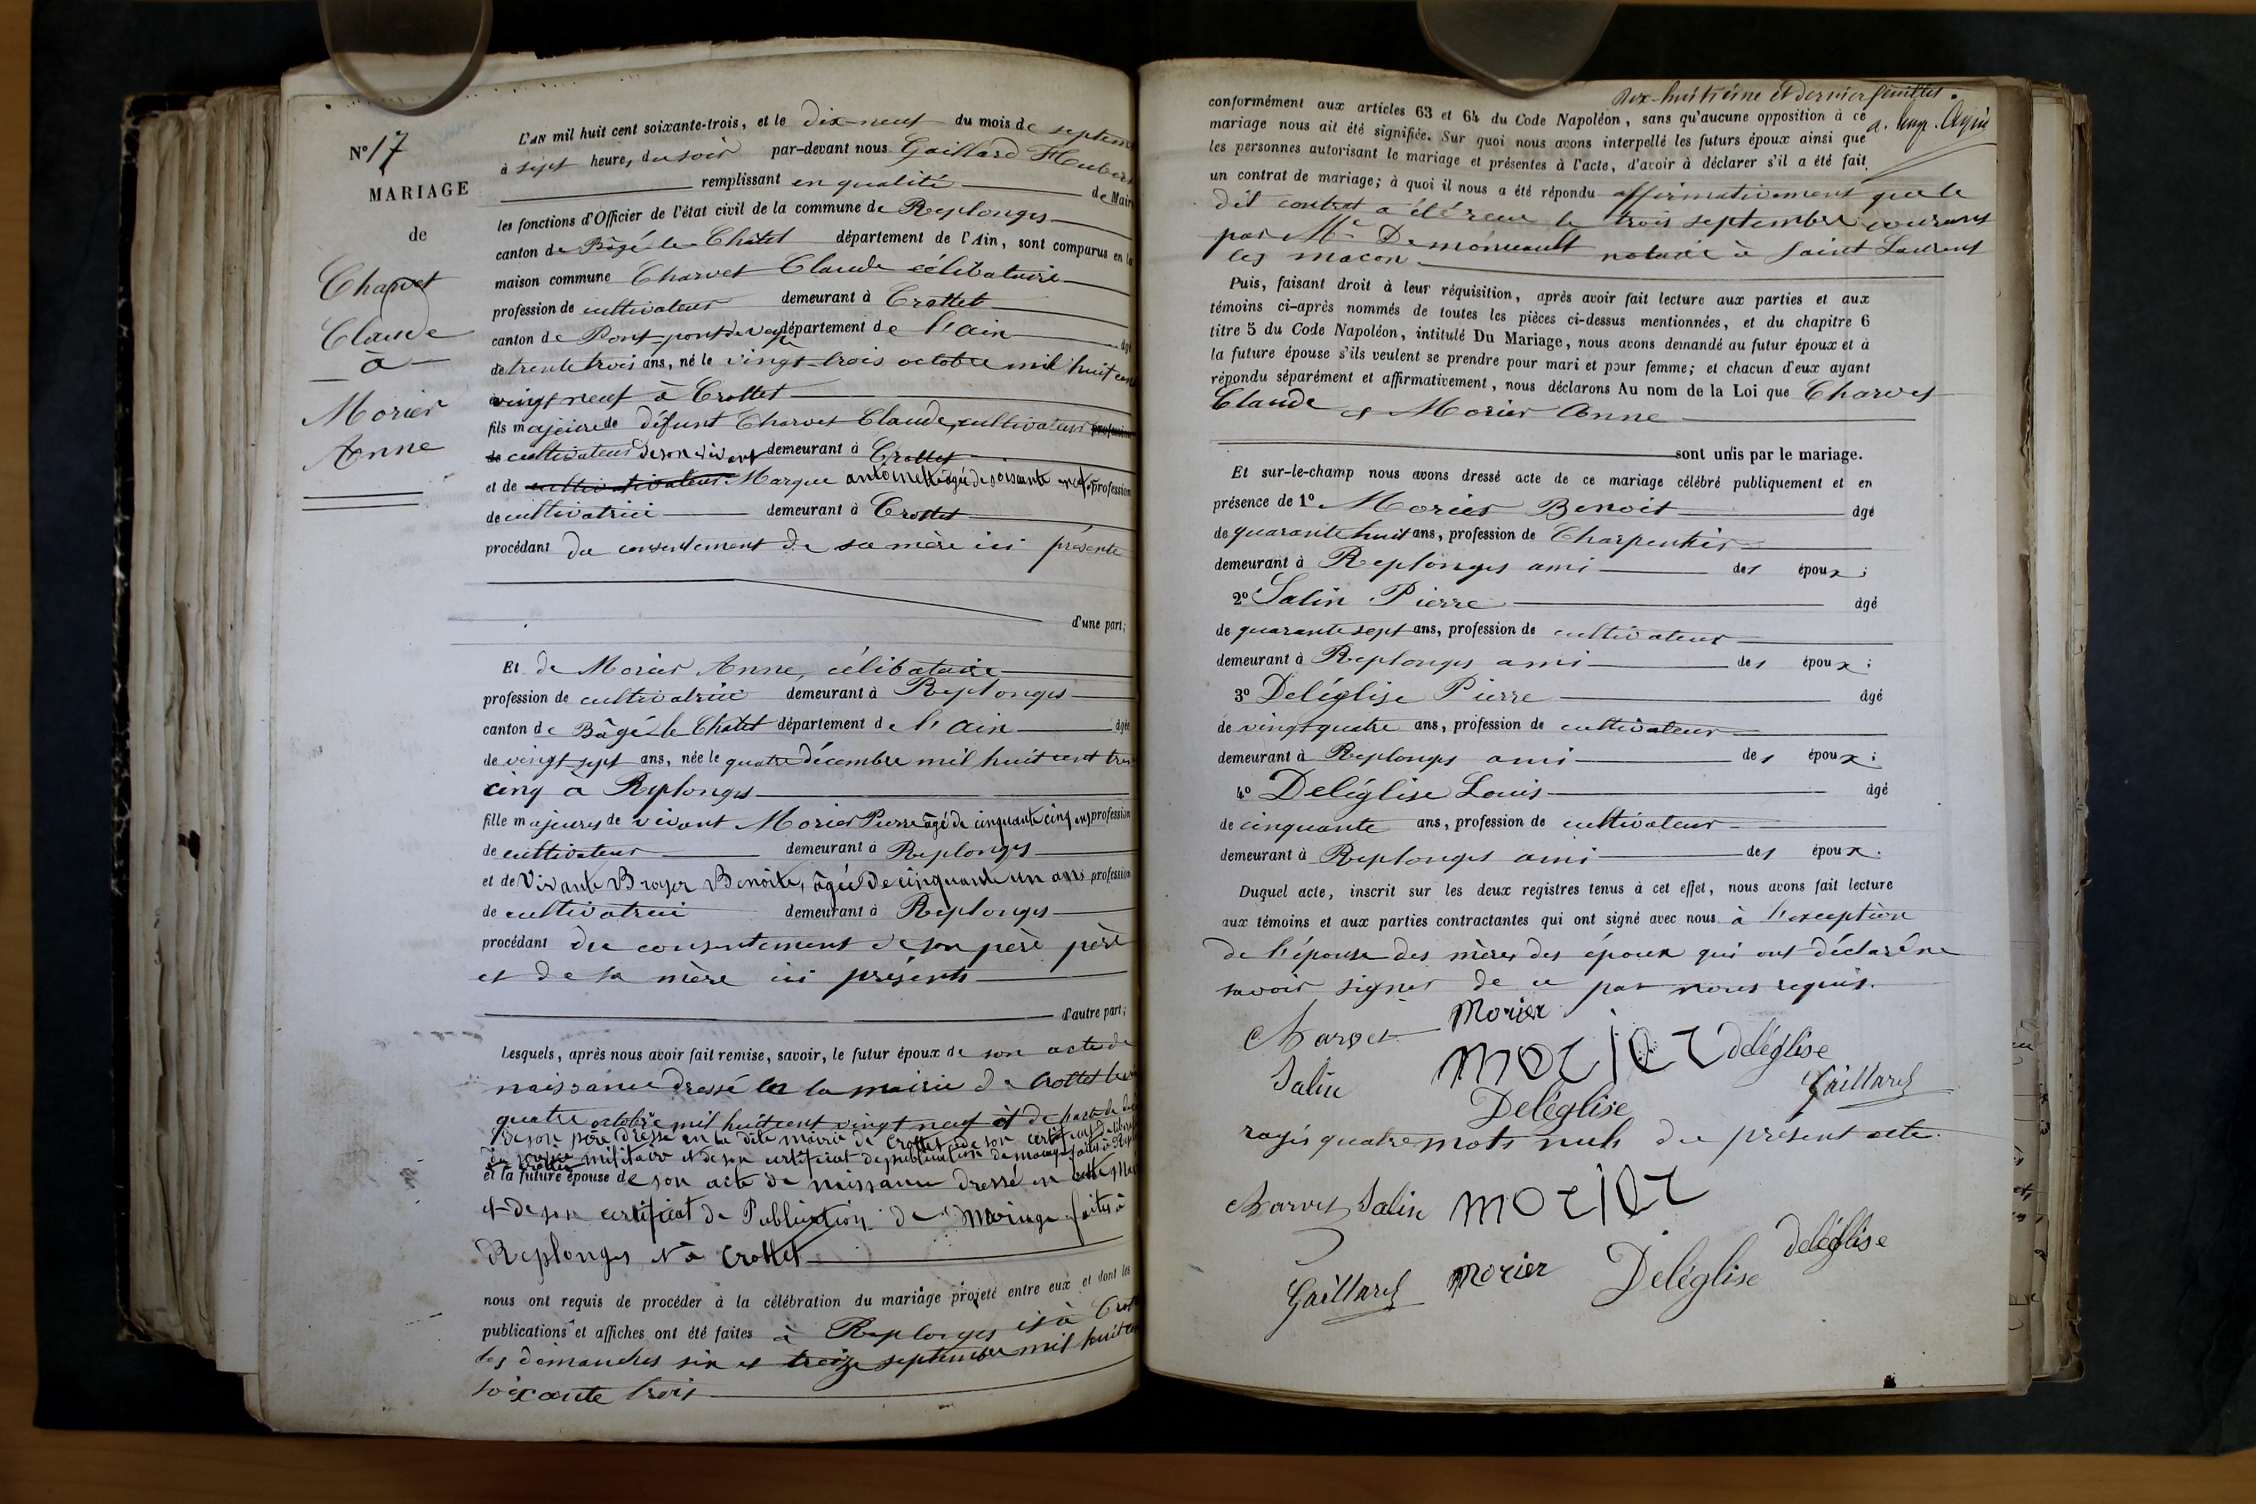 N° 17
MARIAGE
de
Charvet
Claude
à
Morier
Anne
L'AN mil huit cent soixante-trois, et le dix-neuf du mois de septem
à sept heures du soir par-devant nous Gaillard Huber
remplissant en qualité de Mair
les fonctions d'Officier de l'état civil de la commune de Replonges
canton de Bâgé-le-Châtel département de l'Ain, sont comparus en la
maison commune Charvet Claude célibataire
profession de cultivateur demeurant à Crottet
canton de Pont-pont de vaux département de l'ain âgé
de trente trois ans, né le vingt-trois octobre mil huit cent
vingt neuf à Crottet
fils majeur de défunt Charvet Claude, cultivateur profession
de cultivateur de son vivant demeurant à Crottet
et de cultivativateur Marque antoinette âgée de soixante profession
de cultivatrice demeurant à Crottet
procédant du consentement de sa mère ici présente
d'une part;
Et de Morier Anne, célibataire
profession de cultivatrice demeurant à Replonges
canton de Bâgé-le-Châtel département de l'Ain âgée
de vingt sept ans, née le quatre décembre mil huit cent tren
cinq a Replonges
fille majeure de vivant Morier Pierre âgé de cinquante cinq ans profession
de cultivateur demeurant à Replonges
et de vivante Broyer Benoite, âgée de cinquante un ans profession
de cultivatrice demeurant à Replonges
procédant du consentement de son père père
et de sa mère ici présents
d'autre part;
Lesquels, après nous avoir fait remise, savoir, le futur époux de son acte de
naissance dressé la mairie de Crottet le
quatre octobre mil huit cent vingt neuf et de
de son père dressé en la dite mairie de Crottet de son certificat
militaire et de son certificat de publication de mariage faites à
et la future épouse de son acte de naissance dressé en cette Mai
et de son certificat de Publication de Mariage faites à
Replonges et à Crottet
nous ont requis de procéder à la célébration du mariage projeté entre eux et dont les
publications et affiches ont été faites à Replonges et à Crot
les dimanches six et treize septembre mil huit cen
soixante trois
dix-huitième et dernier feuillet.
conformément aux articles 63 et 64 du Code Napoléon, sans qu'aucune opposition à ce
mariage nous ait été signifiée. Sur quoi nous avons interpellé les futurs époux ainsi que
les personnes autorisant le mariage et présentes à l'acte, d'avoir à déclarer s'il a été fait
un contrat de mariage; à quoi il nous a été répondu affirmativement que le
dit contrat a été reçu le trois septembre courant
par Me notaire à Saint Laurent
les macon
Puis, faisant droit à leur réquisition, après avoir fait lecture aux parties et aux
témoins ci-après nommés de toutes les pièces ci-dessus mentionnées, et du chapitre 6
titre 5 du Code Napoléon, intitulé Du Mariage, nous avons demandé au futur époux et à
la future épouse s'ils veulent se prendre pour mari et pour femme; et chacun d'eux ayant
répondu séparément et affirmativement, nous déclarons Au nom de la Loi que Charvet
Claude et Morier Anne
sont unis par le mariage.
Et sur-le-champ nous avons dressé acte de ce mariage célébré publiquement et en
présence de 1° Morier Benoit âgé
de quarante huit ans, profession de Charpentier
demeurant à Replonges ami des époux;
2° Salin Pierre âgé
de quarante sept ans, profession de cultivateur
demeurant à Replonges ami des époux;
3° Deléglise Pierre âgé
de vingt quatre ans, profession de cultivateur
demeurant à Replonges ami des époux;
4° Deléglise Louis âgé
de cinquante ans, profession de cultivateur
demeurant à Replonges ami des époux.
Duquel acte, inscrit sur les deux registres tenus à cet effet, nous avons fait lecture
aux témoins et aux parties contractantes qui ont signé avec nous à l'exception
de l'épouse des mères des époux qui ont déclaré ne
savoir signer de ce par nous requis.
Charvet Morier
Salin morier deléglise
Deléglise Gaillard
rayés quatre mots nuls du présent acte.
Charvet Salin morier
Gaillard morier Deléglise deléglise